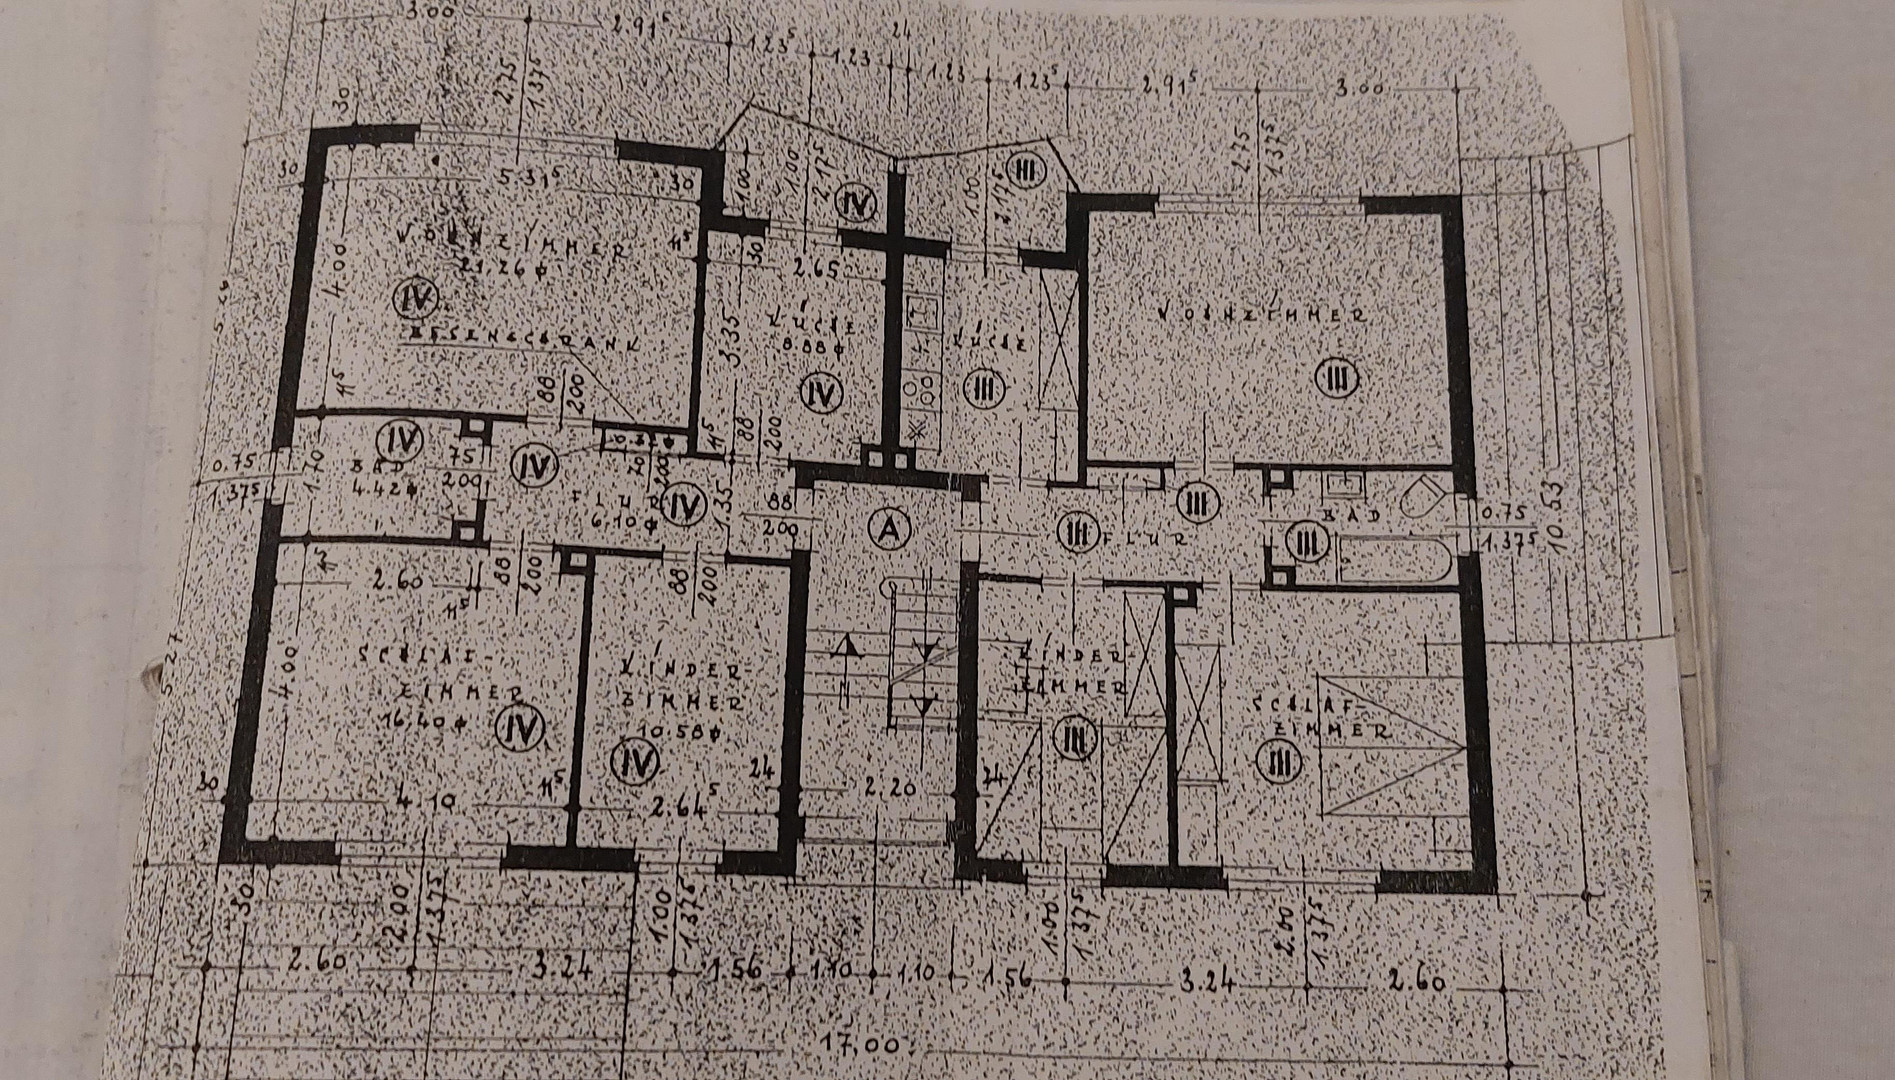 3.00 2.91⁵ 1.23⁵ 1.23 24 1.23 1.23⁵ 2.91⁵ 3.00
2.75 1.37⁵
2.75 1.37⁵
30
30 5.31⁵ 30
1.00 1.00 2.17⁵ IV
1.00 2.17⁵ III
WOHNZIMMER
21.26 ϕ
4.00
IV
BESENSCHRANK
11⁵
30 2.65
3.35
KÜCHE
8.88 ϕ
IV
KÜCHE
III
WOHNZIMMER
III
11⁵
88 200
11⁵
88 200
0.75
1.37⁵
1.70
IV
BAD
4.42 ϕ
75
200
IV
70 200
FLUR
6.10 ϕ
IV
1.35
88
200
A
III FLUR
III
BAD
III
0.75
1.37⁵
10.53
11⁵
2.60
11⁵
88 200
88 200
5.27
4.00
SCHLAF-
ZIMMER
16.40 ϕ
IV
KINDER-
ZIMMER
10.58 ϕ
IV
KINDER-
ZIMMER
III
SCHLAF-
ZIMMER
III
30 4.10 11⁵ 2.64⁵ 24 2.20 24
30
2.00 1.37⁵
1.00 1.37⁵
1.00 1.37⁵
2.00 1.37⁵
2.60 3.24 1.56 1.10 1.10 1.56 3.24 2.60
17,00